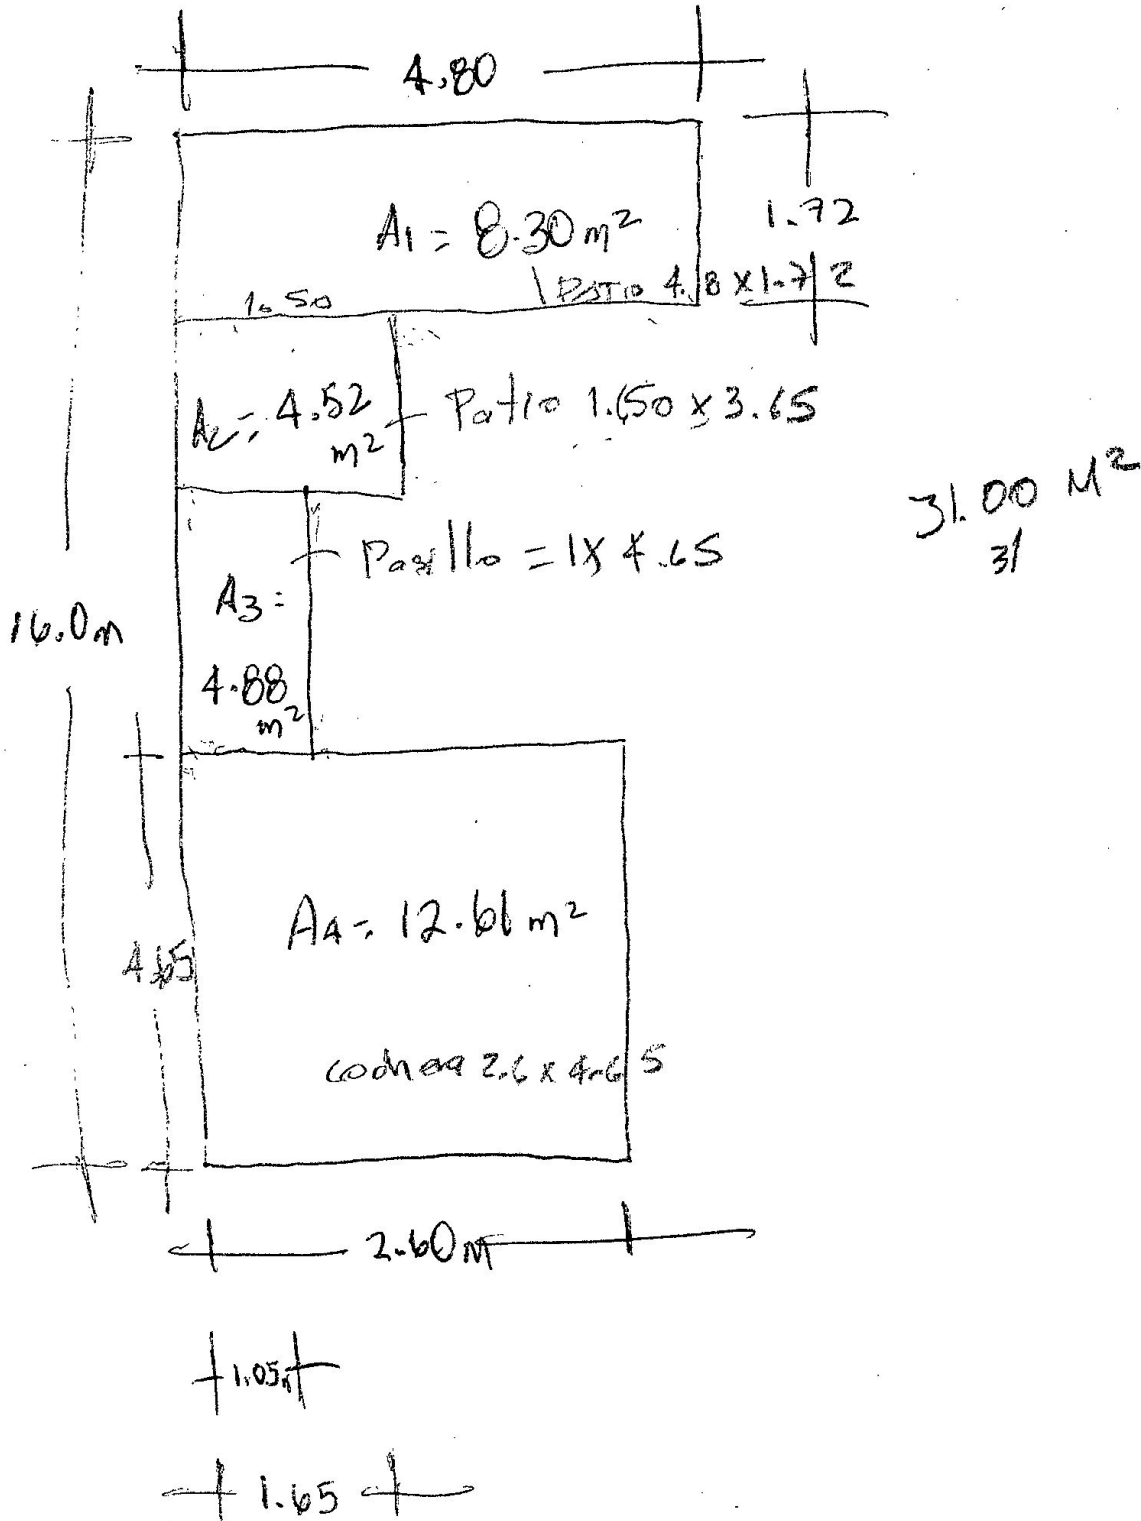 4.80
A1 = 8.30 m²
1.72
Patio 4.8 x 1.72
1.50
A2 = 4.52 m²
Patio 1.50 x 3.65
31.00 M²
31
Pasillo = 1 x 4.65
A3 =
4.88 m²
16.0m
A4 = 12.61 m²
4.65
cochera 2.6 x 4.65
2.60 m
1.05
1.65